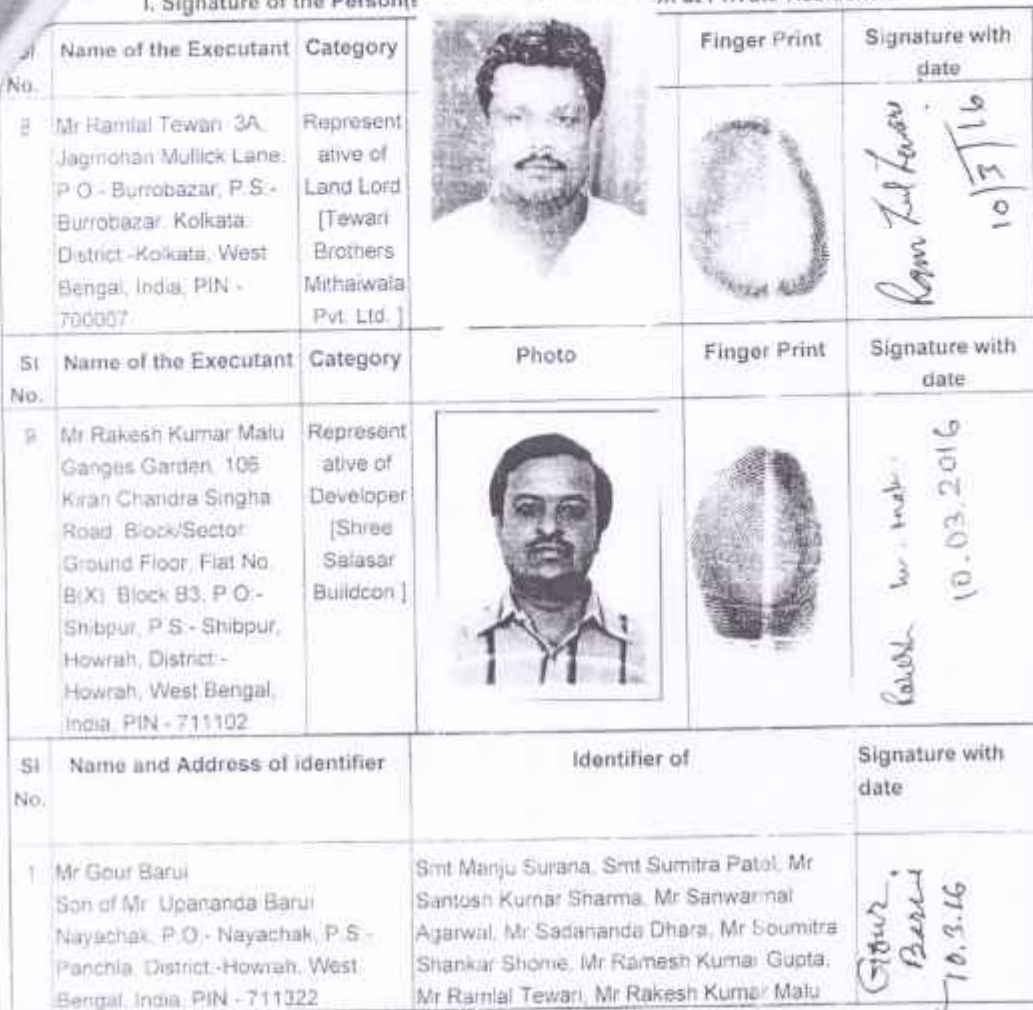 I. Signature of the Person(s at Private Residence
Sl No. Name of the Executant Category Finger Print Signature with date
8 Mr Ramlal Tewari 3A,
Jagmohan Mullick Lane,
P.O:- Burrobazar, P.S:-
Burrobazar, Kolkata,
District:-Kolkata, West
Bengal, India, PIN -
700007
Represent
ative of
Land Lord
[Tewari
Brothers
Mithaiwala
Pvt. Ltd. ]
Ram Lal Tewari
10/3/16
Sl No. Name of the Executant Category Photo Finger Print Signature with date
9 Mr Rakesh Kumar Malu
Ganges Garden, 106
Kiran Chandra Singha
Road, Block/Sector:
Ground Floor, Flat No:
B(X), Block B3, P.O:-
Shibpur, P.S:- Shibpur,
Howrah, District:-
Howrah, West Bengal,
India, PIN - 711102
Represent
ative of
Developer
[Shree
Salasar
Buildcon ]
Rakesh
10.03.2016
Sl No. Name and Address of identifier Identifier of Signature with date
1 Mr Gour Barui
Son of Mr Upananda Barui
Nayachak, P.O:- Nayachak, P.S:-
Panchla, District:-Howrah, West
Bengal, India, PIN - 711322
Smt Manju Surana, Smt Sumitra Patol, Mr
Santosh Kumar Sharma, Mr Sanwarmal
Agarwal, Mr Sadananda Dhara, Mr Soumitra
Shankar Shome, Mr Ramesh Kumar Gupta,
Mr Ramlal Tewari, Mr Rakesh Kumar Malu
Gour
Barui
10.3.16